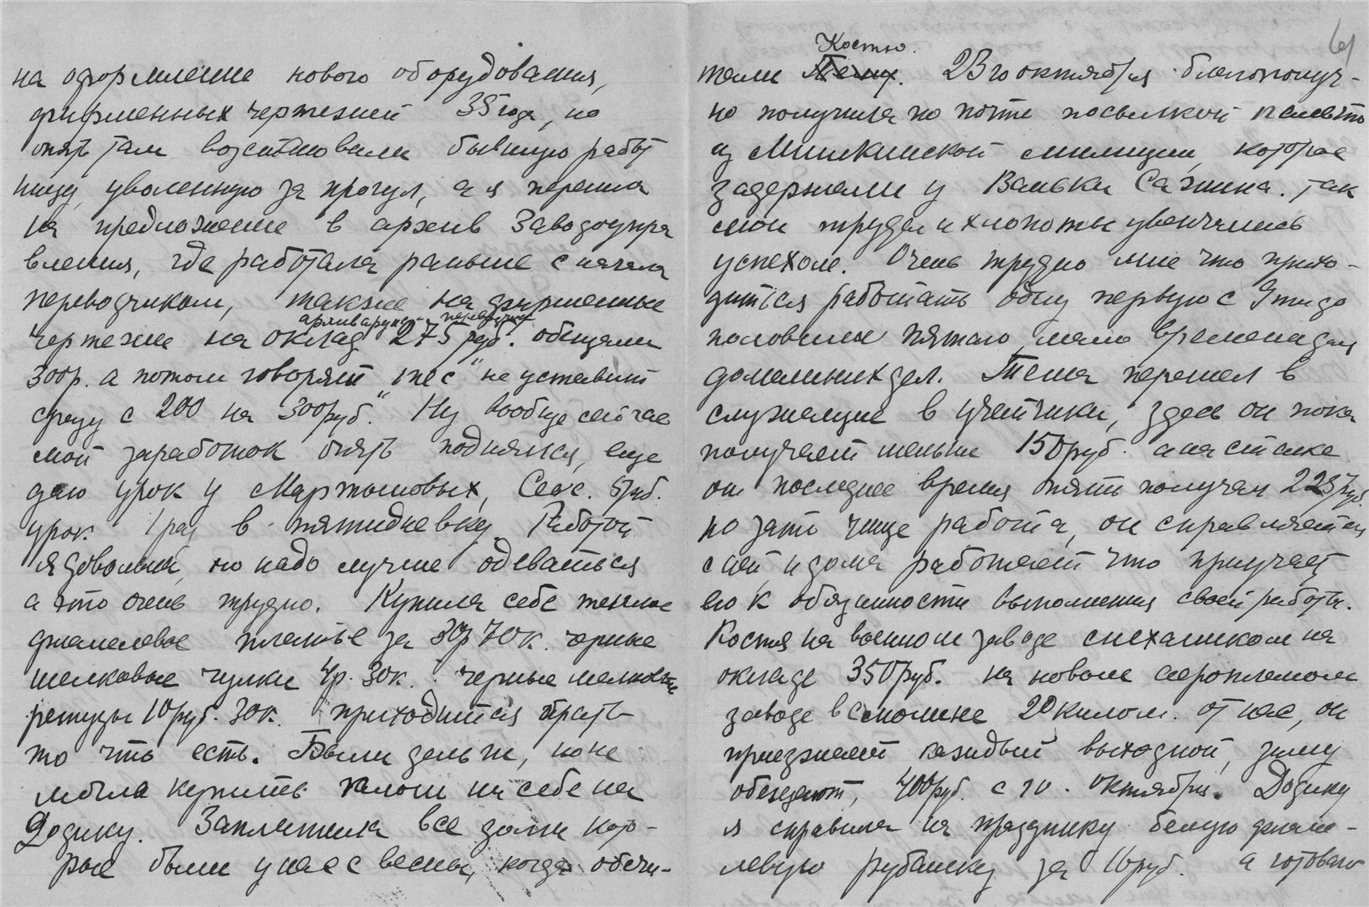 на оформление нового оборудования,
фирменных чертежей 35 года, но
опять там восстановили бывшую работ
ницу, уволенную за прогул, а я перешла
на предложение в архив Заводоупра
вления, где работала раньше с начала
переводчиком, также на фирменные
чертежи на оклад 275 руб. обещали
архивариус-переводчик
300р. а потом говорят "не уставит
сразу с 200 на 300руб." Ну вообще сейчас
мой заработок опять поднялся, еще
даю урок у Мартыновых, 5руб.
урок 1 раз в пятидневку. Работой
я довольна, но надо лучше одеваться
а это очень трудно. Купила себе теплое
фланелевое платье за 30р 70к. черные
шелковые чулки 4р. 30к. черные шелковые
рейтузы 10 руб. 30к. приходится брать
то что есть. Были деньги, но не
могла купить калош ни себе ни
Додику. Заплатила все долги кото-
рые были у нас с весны, когда обчи-
61
Костю.
стили Тему. 23го октября благополуч-
но получила по почте посылкой пальто
из милиции, которое
задержали у Ваньки Сажина. Так
мои труды и хлопоты увенчались
успехом. Очень трудно мне что прихо-
дится работать одну первую с 9ти до
половины пятого, мало времени для
домашних дел. Тема перешел в
служащие в учетчики, здесь он пока
получает меньше 150руб. а на станке
он последнее время опять получал 225 руб.
но зато чище работа, он справляется
с ней, и дома работает что приучает
его к обязанности выполнения своей работы.
Костя на военном заводе механиком на
окладе 350руб. на новом аеропланном
заводе в Смолине 20 килом. от нас, он
приезжает каждый выходной, зиму
обещают, 400руб. с октября. Додику
я справила к празднику белую флане-
левую рубашку за 16руб. а готового